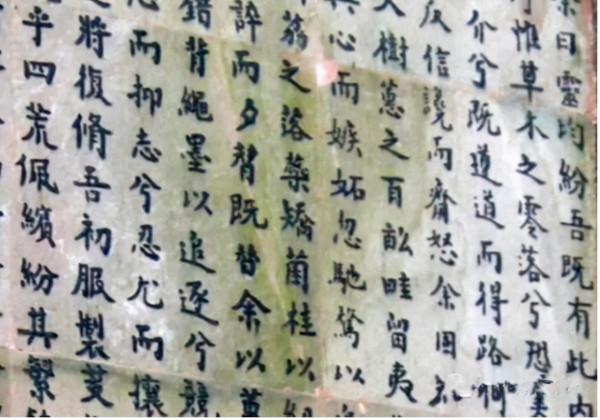 曰靈均紛吾既有此內
惟草木之零落兮恐
介兮既遵道而得路何
反信讒而齋怒余固知
樹蕙之百畝畦留夷
心而嫉妬忽馳騖以
荔之落蘂矯菌桂以
誶而夕替既替余以蕙
錯背繩墨以追逐兮競
心而抑志兮忍尤而攘
將復脩吾初服製芰
乎四荒佩繽紛其繁